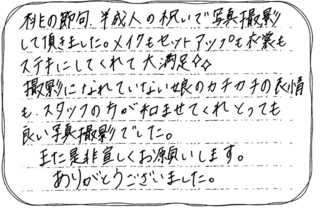 桃の節句、半成人の祝いで写真撮影
して頂きました。メイクもセットアップも衣裳も
ステキにしてくれて大満足☆☆
撮影になれていない娘のカチカチの表情
も、スタッフの方が和ませてくれとっても
良い写真撮影でした。
また是非宜しくお願いします。
ありがとうございました。